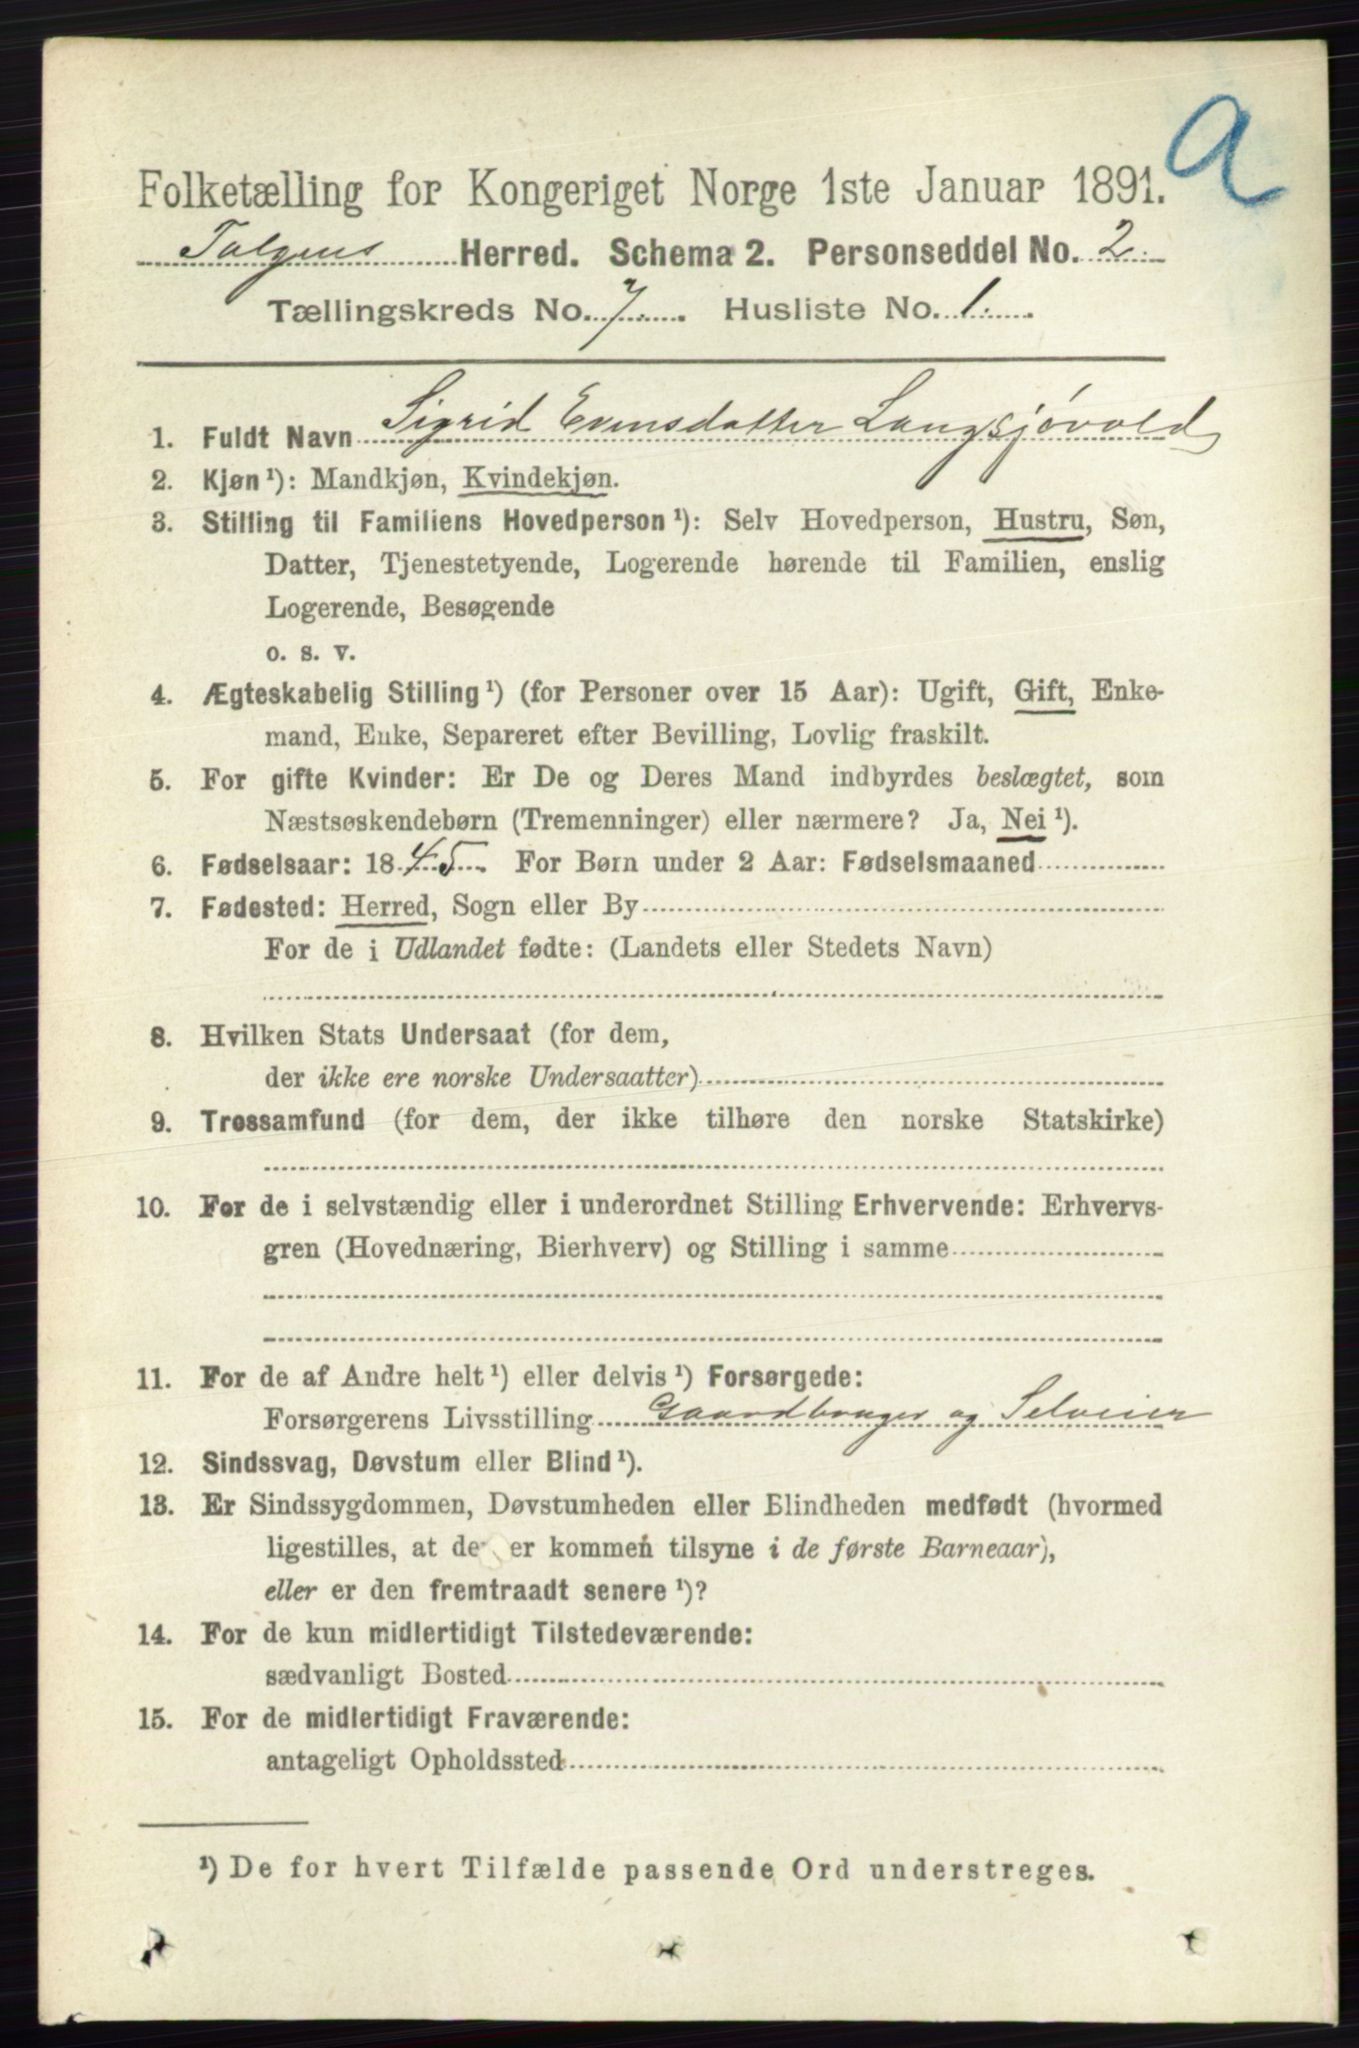 a
Folketælling for Kongeriget Norge 1ste Januar 1891.
Tolgens Herred. Schema 2. Personseddel No. 2.
Tællingskreds No. 7. Husliste No. 1.
1. Fuldt Navn Sigrid Evensdatter Langsjøvold
2. Kjøn¹): Mandkjøn, Kvindekjøn.
3. Stilling til Familiens Hovedperson¹): Selv Hovedperson, Hustru, Søn,
Datter, Tjenestetyende, Logerende hørende til Familien, enslig
Logerende, Besøgende
o. s. v.
4. Ægteskabelig Stilling¹) (for Personer over 15 Aar): Ugift, Gift, Enke-
mand, Enke, Separeret efter Bevilling, Lovlig fraskilt.
5. For gifte Kvinder: Er De og Deres Mand indbyrdes beslægtet, som
Næstsøskendebørn (Tremenninger) eller nærmere? Ja, Nei¹).
6. Fødselsaar: 1845. For Børn under 2 Aar: Fødselsmaaned
7. Fødested: Herred, Sogn eller By
For de i Udlandet fødte: (Landets eller Stedets Navn)
8. Hvilken Stats Undersaat (for dem,
der ikke ere norske Undersaatter)
9. Trossamfund (for dem, der ikke tilhøre den norske Statskirke)
10. For de i selvstændig eller i underordnet Stilling Erhvervende: Erhvervs-
gren (Hovednæring, Bierhverv) og Stilling i samme
11. For de af Andre helt¹) eller delvis¹) Forsørgede:
Forsørgerens Livsstilling Gaardbruger og Selveier
12. Sindssvag, Døvstum eller Blind¹).
13. Er Sindssygdommen, Døvstumheden eller Blindheden medfødt (hvormed
ligestilles, at de er kommen tilsyne i de første Barneaar),
eller er den fremtraadt senere¹)?
14. For de kun midlertidigt Tilstedeværende:
sædvanligt Bosted
15. For de midlertidigt Fraværende:
antageligt Opholdssted
¹) De for hvert Tilfælde passende Ord understreges.